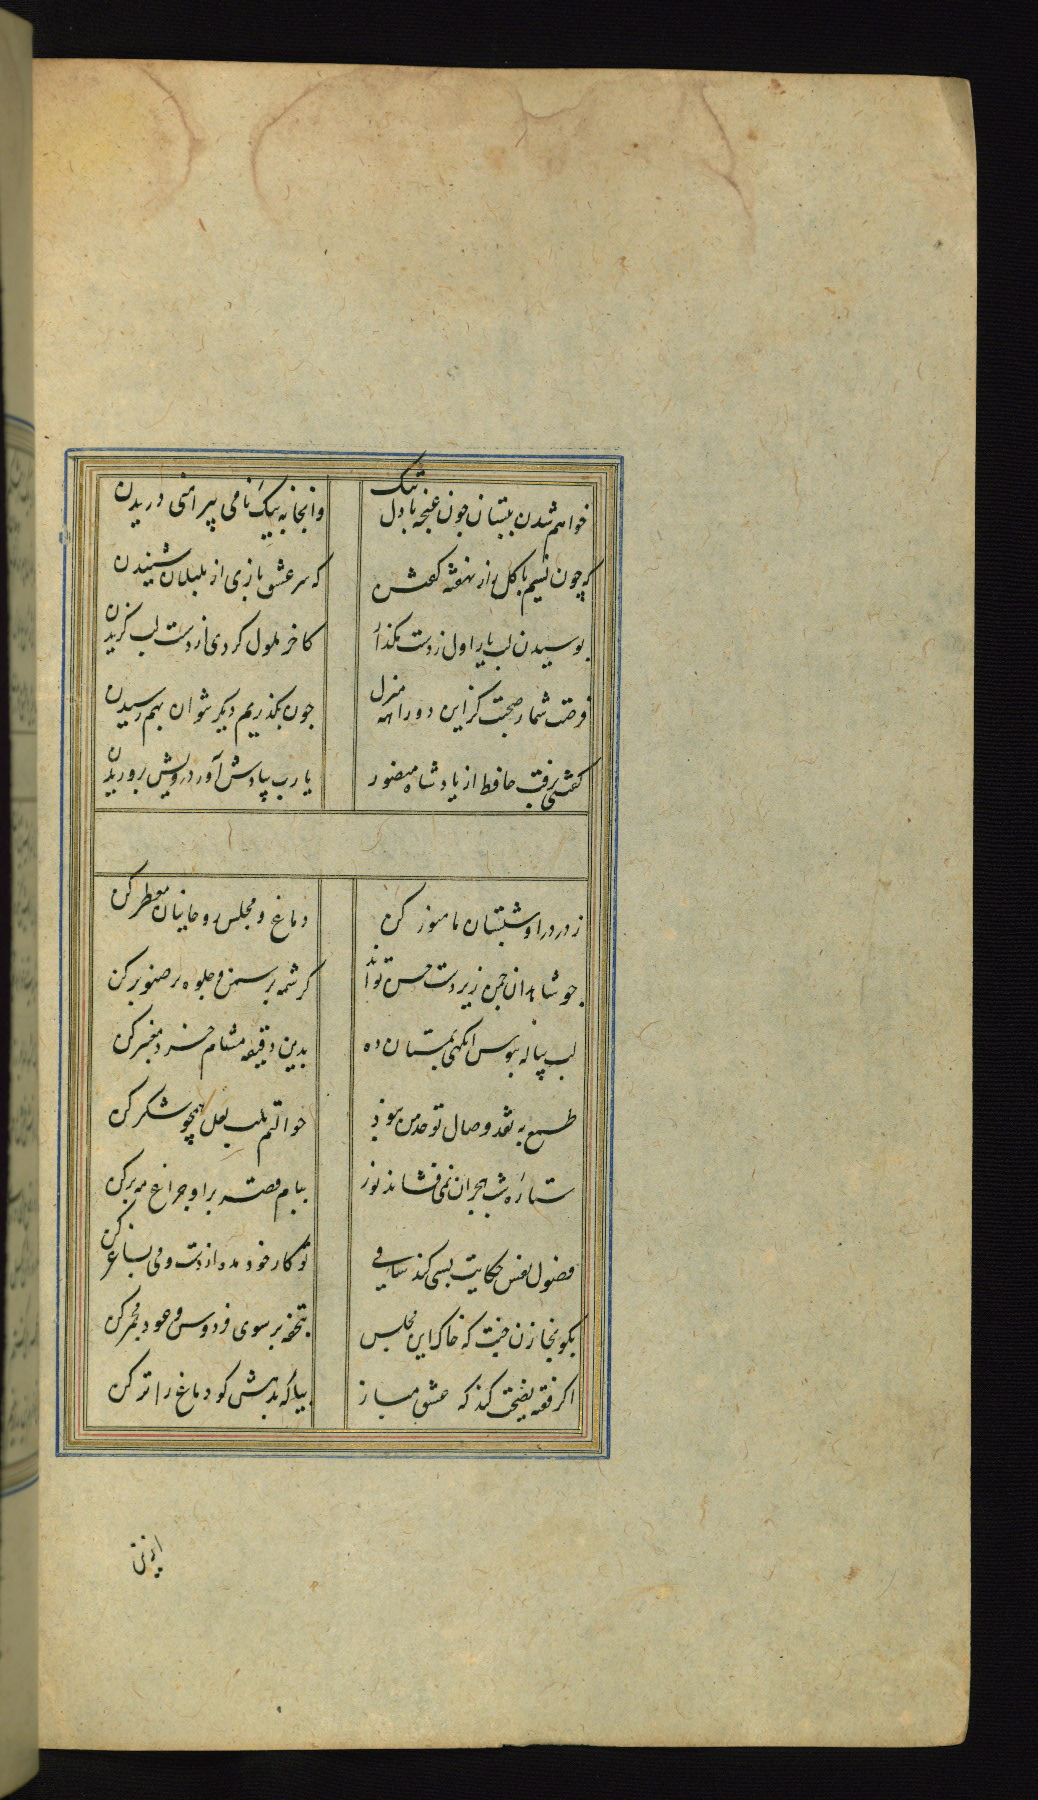 خواهم شدن ببستان چون غنچه با دل تنک وانجا به نیک نامی پیراهنی دریدن
که چون نسیم با کل راز نهفته کفتن که سر عشق بازی از بلبلان شنیدن
بوسیدن لب یار اول ز دست مکذار کاخر ملول کردی از دست لب کزیدن
فرصت شمار صحبت کز این دوراهه منزل چون بکذریم دیکر نتوان بهم رسیدن
کفتی برفت حافظ از یاد شاه منصور یا رب بیادش آور درویش پروریدن
ز در درا و شبستان ما منور کن دماغ و مجلس روحانیان معطر کن
چو شاهدان چمن زیر دست حسن تواند کرشمه بر سمن و جلوه بر صنوبر کن
لب پیاله ببوس انکهی بمستان ده بدین دقیقه مشام خرد معنبر کن
طمع به نقد وصال تو حد من نبود حوالتم بلب لعل همچو شکر کن
ستاره شب هجران نمی فشاند نور ببام قصر برا و چراغ مه بر کن
فضول نفس حکایت بسی کند ساقی تو کار خود مده از دست و می بساغر کن
بکو بخازن جنت که خاک این مجلس بتحفه بر سوی فردوس و عود مجمر کن
اکر فقیه نصیحت کند که عشق مباز پیاله بدهش کو دماغ را تر کن